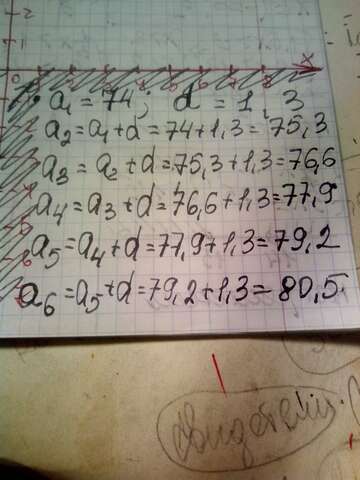 2
1
0 1 2 3 4 5 6 7 8 X
a₁ = 74; d = 1,3
a₂ = a₁ + d = 74 + 1,3 = 75,3
a₃ = a₂ + d = 75,3 + 1,3 = 76,6
a₄ = a₃ + d = 76,6 + 1,3 = 77,9
a₅ = a₄ + d = 77,9 + 1,3 = 79,2
a₆ = a₅ + d = 79,2 + 1,3 = 80,5